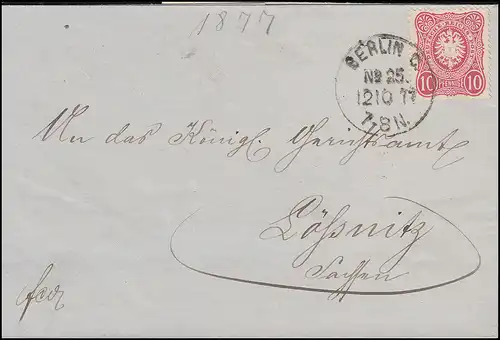 1877
BERLIN C
No 25.
12 10 77
7-8 N.
10 PFENNIG 10
An das Königl. Gerichtsamt
Lößnitz
Sachsen